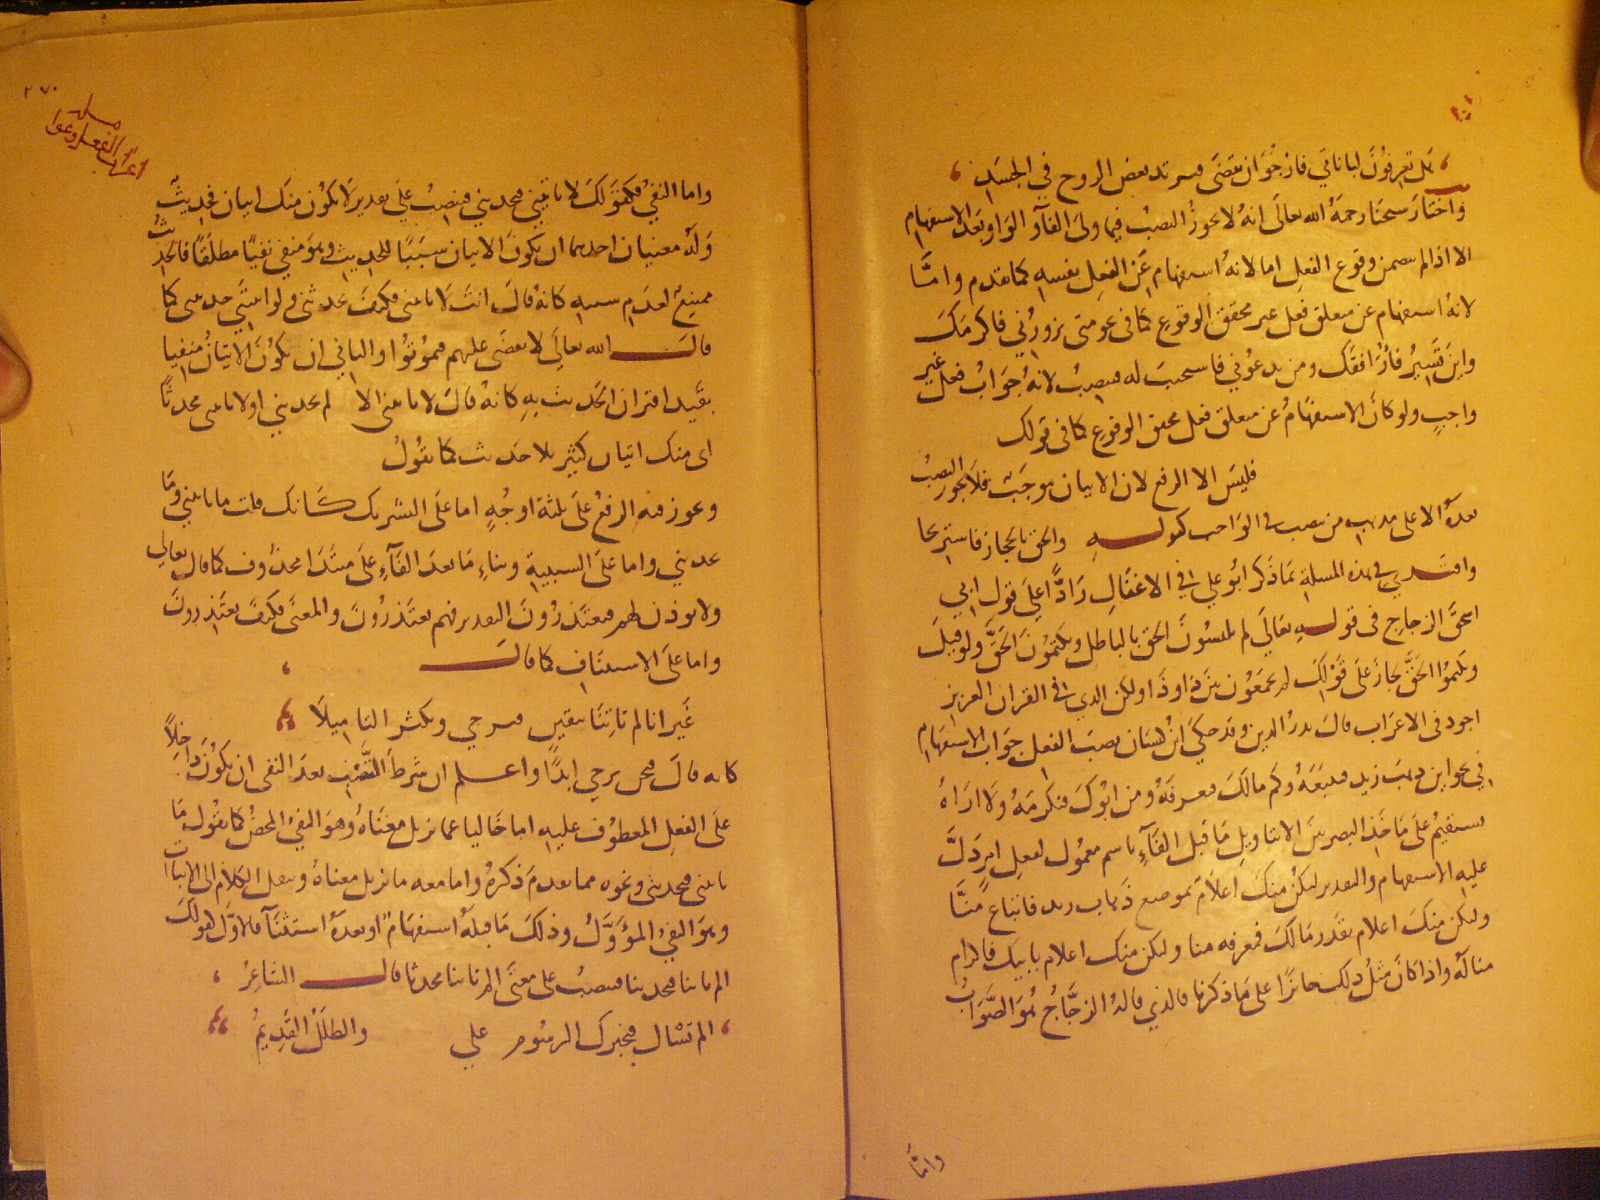 هل تعرفون لباناتي فارجو ان تقضى فيرتد بعض الروح في الجسد
واختار شيخنا رحمه الله تعالى انه لا يجوز النصب فيما ولى الفاء والواو بعد الاستفهام
الا اذا لم يتضمن وقوع الفعل اما لانه استفهام عن الفعل نفسه كما تقدم واما
لانه استفهام عن متعلق فعل غير محقق الوقوع كما في نحو متى تزورني فاكرمك
واين تسير فارافقك ومن يدعوني فاستجيب له فينصب لانه جواب فعل غير
واجب ولو كان الاستفهام عن متعلق فعل محقق الوقوع كما في قولك
فليس الا الرفع لان الاتيان موجب فلا يجوز النصب
بعده الا على مذهب من نصب في الواجب كقوله والحق بالحجاز فاستريحا
في هذه المسئلة بما ذكر ابو علي في الاغفال رادا على قول ابي
اسحق الزجاج في قوله تعالى لم تلبسون الحق بالباطل وتكتمون الحق ولو قيل
وتكتموا الحق لجاز على قولك لم تجمعون بين ذا وذا ولكن الذي في القران العزيز
اجود في الاعراب قال بدر الدين وقد حكى ابن كيسان نصب الفعل جواب الاستفهام
في نحو اين ذهب زيد فنتبعه وكم مالك فنعرفه ومن ابوك فنكرمه ولا اراه
يستقيم على ماخذ البصريين الا بتاويل ما قبل الفاء باسم معمول لفعل امر دل
عليه الاستفهام والتقدير ليكن منك اعلام بموضع ذهاب زيد فاتباع منا
وليكن منك اعلام بقدر مالك فمعرفه منا وليكن منك اعلام بابيك فاكرام
منا له واذا كان مثل ذلك جائزا على ما ذكرنا فالذي قاله الزجاج هو الصواب
واما
٣٧٠
مسئله
اعراب الفعل وعوا
واما النفي فكقولك لا تاتيني فتحدثني فينصب على تقدير لا يكون منك اتيان فحديث
وله معنيان احدهما ان يكون الاتيان سببا للحديث وهو منفي نفيا مطلقا فالحديث
ممتنع لعدم سببه كانه قال انت لا تاتيني فكيف تحدثني ولو اتيتني حدثتني كما
قال الله تعالى لا يقضى عليهم فيموتوا والثاني ان يكون الاتيان منفيا
بقيد اقتران الحديث به كانه قال لا تاتيني الا لم تحدثني او لا تاتيني محدثا
اى منك اتيان كثير بلا حديث كما تقول
ويجوز فيه الرفع على ثلثة اوجه اما على التشريك كانك قلت ما تاتيني وما
تحدثني واما على السببية وبناء ما بعد الفاء على مبتدا محذوف كما قال تعالى
ولا يوذن لهم فيعتذرون التقدير فهم يعتذرون والمعنى فكيف يعتذرون
واما على الاستئناف كما قال
غير انا لم تاتنا بيقين فنرجي ونكثر التاميلا
كانه قال فنحن نرجي ابدا واعلم ان شرط النصب بعد النفى ان يكون داخلا
على الفعل المعطوف عليه اما خاليا عما يزيل معناه وهو النفي المحض كما تقول ما
تاتيني فتحدثني ونحوه مما تقدم ذكره واما معه ما يزيل معناه وينقل الكلام الى الاثبات
وهو النفي المؤول وذلك ما قبله استفهام او بعده استثناء فالاول كقولك
الم تاتنا فتحدثنا فينصب على معنى الم تاتنا محدثا قال الشاعر
الم تسال فتخبرك الرسوم على والطلل القديم